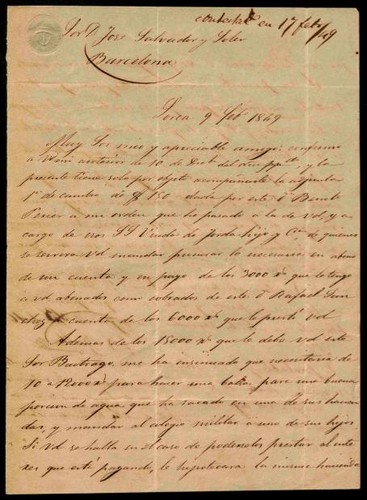 contestdo en 17 febro/49
Sor D. José Salvador y Soler
Barcelona
Lorca 9 feb 1849
Muy Sor mio y apreciable amigo: confirmo
a V. mi anterior de 10 de Dbe del año ppdo y la
presente tiene solo por objeto acompañarle la adjunta
1a de cambio de 150 dada por este D. Benito
Perier a mi orden que he pasado a la de Vd, y a
cargo de esos SS Viuda de hijo y Ca de quienes
se servira Vd mandar procurar lo necesario en abono
de mi cuenta y en pago de los 3000 que le tengo
a Vd abonados como cobrados de este D. Rafael San
chez a cuenta de los 6000 que le prestó Vd
Ademas de los 15000 que le debe Vd este
Sor Buitrago, me ha insinuado que necesitaria de
10 a 12000 para hacer una balsa para una buena
porcion de agua que ha sacado en una de sus hacien
das, y mandar al colegio militar a uno de sus hijos
Si Vd se halla en el caso de poderselos prestar al inte
res que está pagando, le hipotecará la misma hacienda